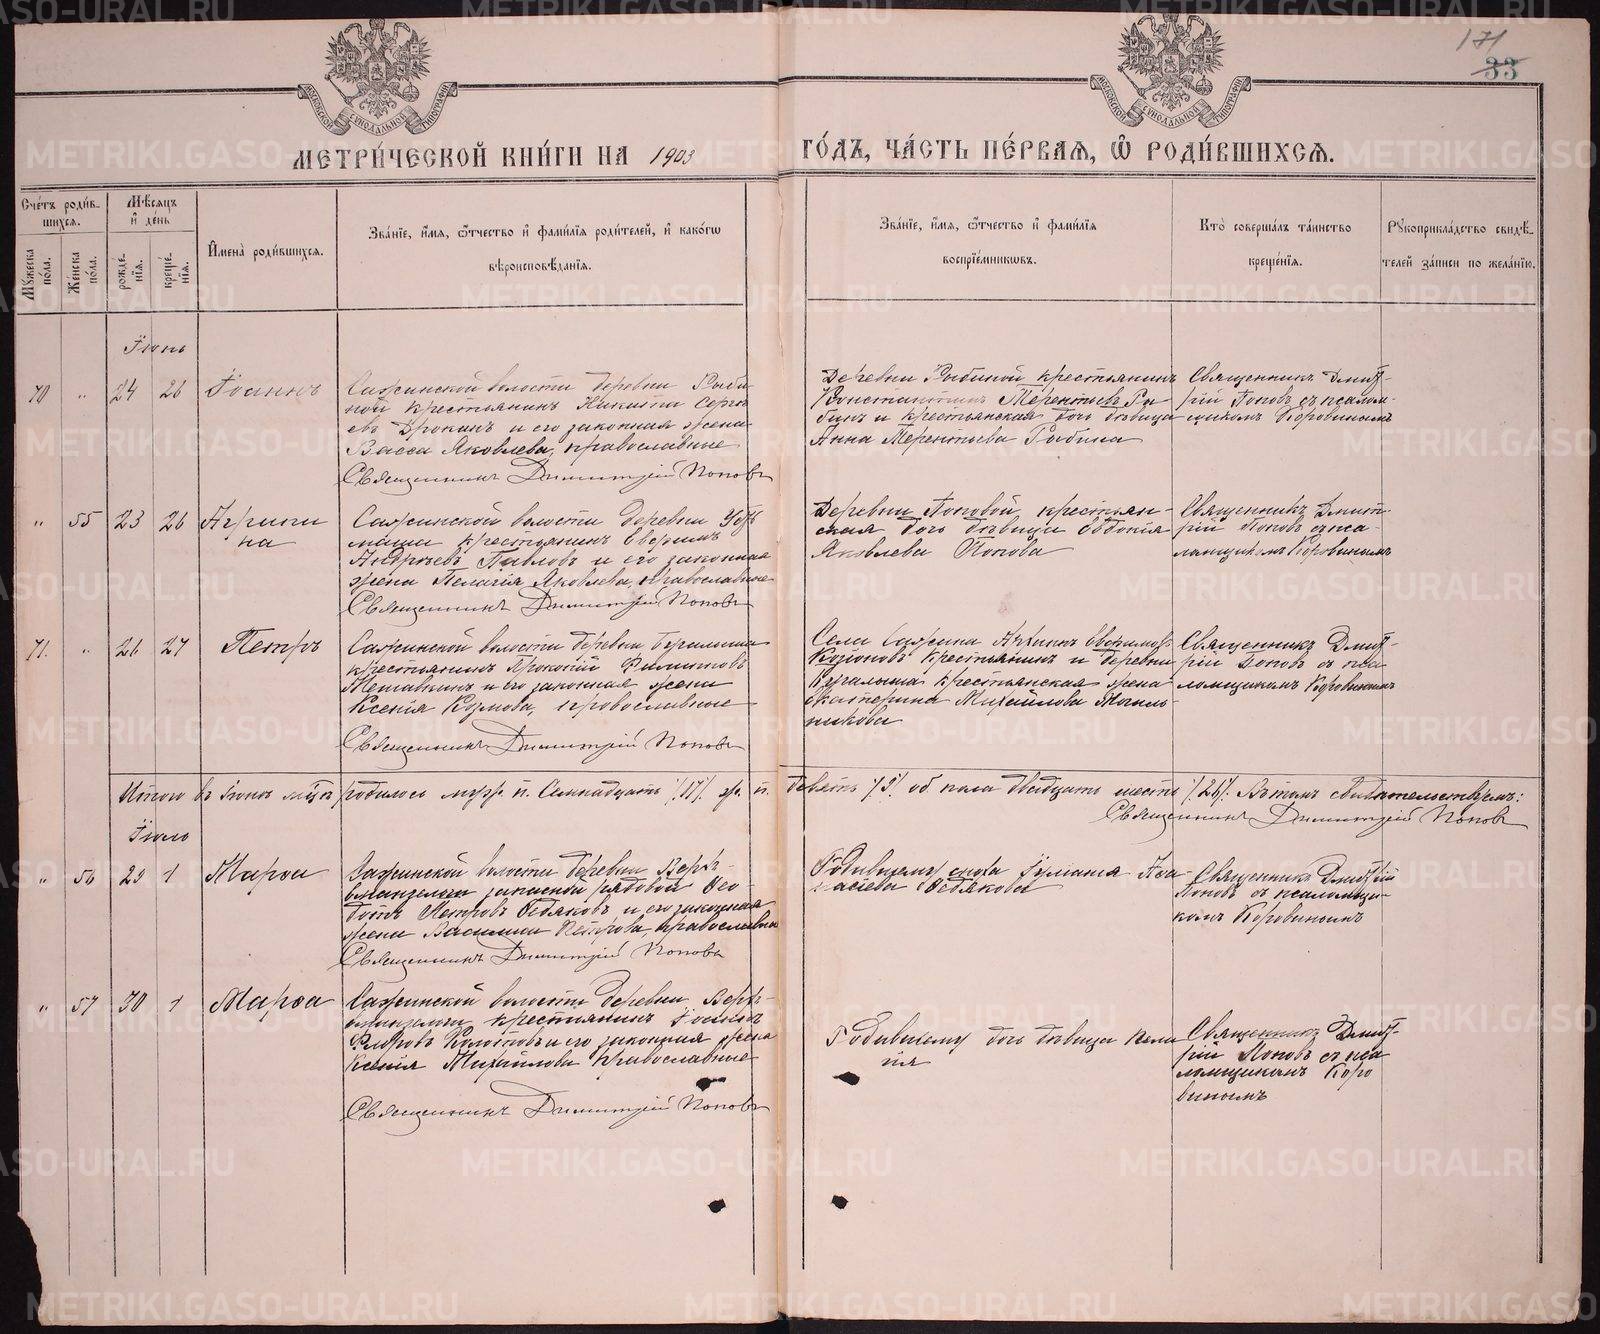 171
33
МЕТРИ́ЧЕСКОЙ КНИ́ГИ НА 1903
ГО́ДЪ, ЧА́СТЬ ПЕ́РВАЯ, Ѿ РОДИ́ВШИХСЯ.
Сче́тъ роди́в-
шихся.
Мꙋжеска пола.
Же́нска по́ла.
Мѣ́сяцъ
и҆ де́нь
рожде́-
нїя.
креще́-
нїя.
И҆мена̀ роди́вшихся.
Зва́нїе, и҆́мя, ѻ҆́тчество и҆ фами́лїя роди́телей, и҆ како́гѡ
вѣроисповѣ́данїя.
Зва́нїе, и҆́мя, ѻ҆́тчество и҆ фами́лїя
воспрїе́мниковъ.
Кто̀ соверша́лъ та́инство
креще́нїя.
Рꙋкоприкла́дство свидѣ́-
телей за́писи по жела́нїю.
Іюнь
70 „ 24 26 Іоаннъ
Сажинской волости деревни Рыби-
ной крестьянинъ Никита Сергѣ-
евъ Дрокинъ и его законная жена
Васса Яковлева, православные
Священникъ Димитрій Поповъ
Деревни Рыбиной крестьянинъ
Константинъ Терентьевъ Ры-
бинъ и крестьянская дочь дѣвица
Анна Терентьева Рыбина
Священникъ Димит-
рій Поповъ съ псалом-
щикомъ Коровинымъ
„ 55 23 26 Агрипи
на
Сажинской волости деревни Усть
маша крестьянинъ Евѳимъ
Андреевъ Павловъ и его законная
жена Пелагія Яковлева, православные
Священникъ Димитрій Поповъ
Деревни Поповой, крестьян-
ская дочь дѣвица Евдокія
Яковлева Попова
Священникъ Димит-
рій Поповъ съ пса-
ломщикомъ Коровинымъ
71. „ 26 27 Петръ
Сажинской волости деревни
крестьянинъ Прокопій Филипповъ
и его законная жена
Ксенія Козмова, православные
Священникъ Димитрій Поповъ
Села Сажина Евѳимовъ
крестьянинъ и деревни
крестьянская жена
Екатерина Михайлова
Священникъ Димит-
рій Поповъ съ пса
ломщикомъ Коровинымъ
Итого въ Іюнѣ мѣсяцѣ родилось муж. п. Семнадцать /17/. ж. п. девять /9/ об. пола двадцать шесть /26/. Въ томъ свидѣтельствуемъ:
Священникъ Димитрій Поповъ
Іюль
„ 56 29 1 Марѳа
Сажинской волости деревни Верх-
запасной рядовой Ѳео-
дотъ Петровъ и его законная
жена Василиса Петрова, православные
Священникъ Димитрій Поповъ
Родившему сноха Іуліанія
Священникъ Димитрій
Поповъ съ псаломщи-
комъ Коровинымъ
„ 57 30 1 Марѳа
Сажинской волости деревни Верх-
крестьянинъ Іоаннъ
и его законная жена
Ксенія Михайлова православные
Священникъ Димитрій Поповъ
Родившему дочь дѣвица Кела
нія
Священникъ Димит-
рій Поповъ съ пса
ломщикомъ Коро
винымъ
METRIKI.GASO-URAL.RU